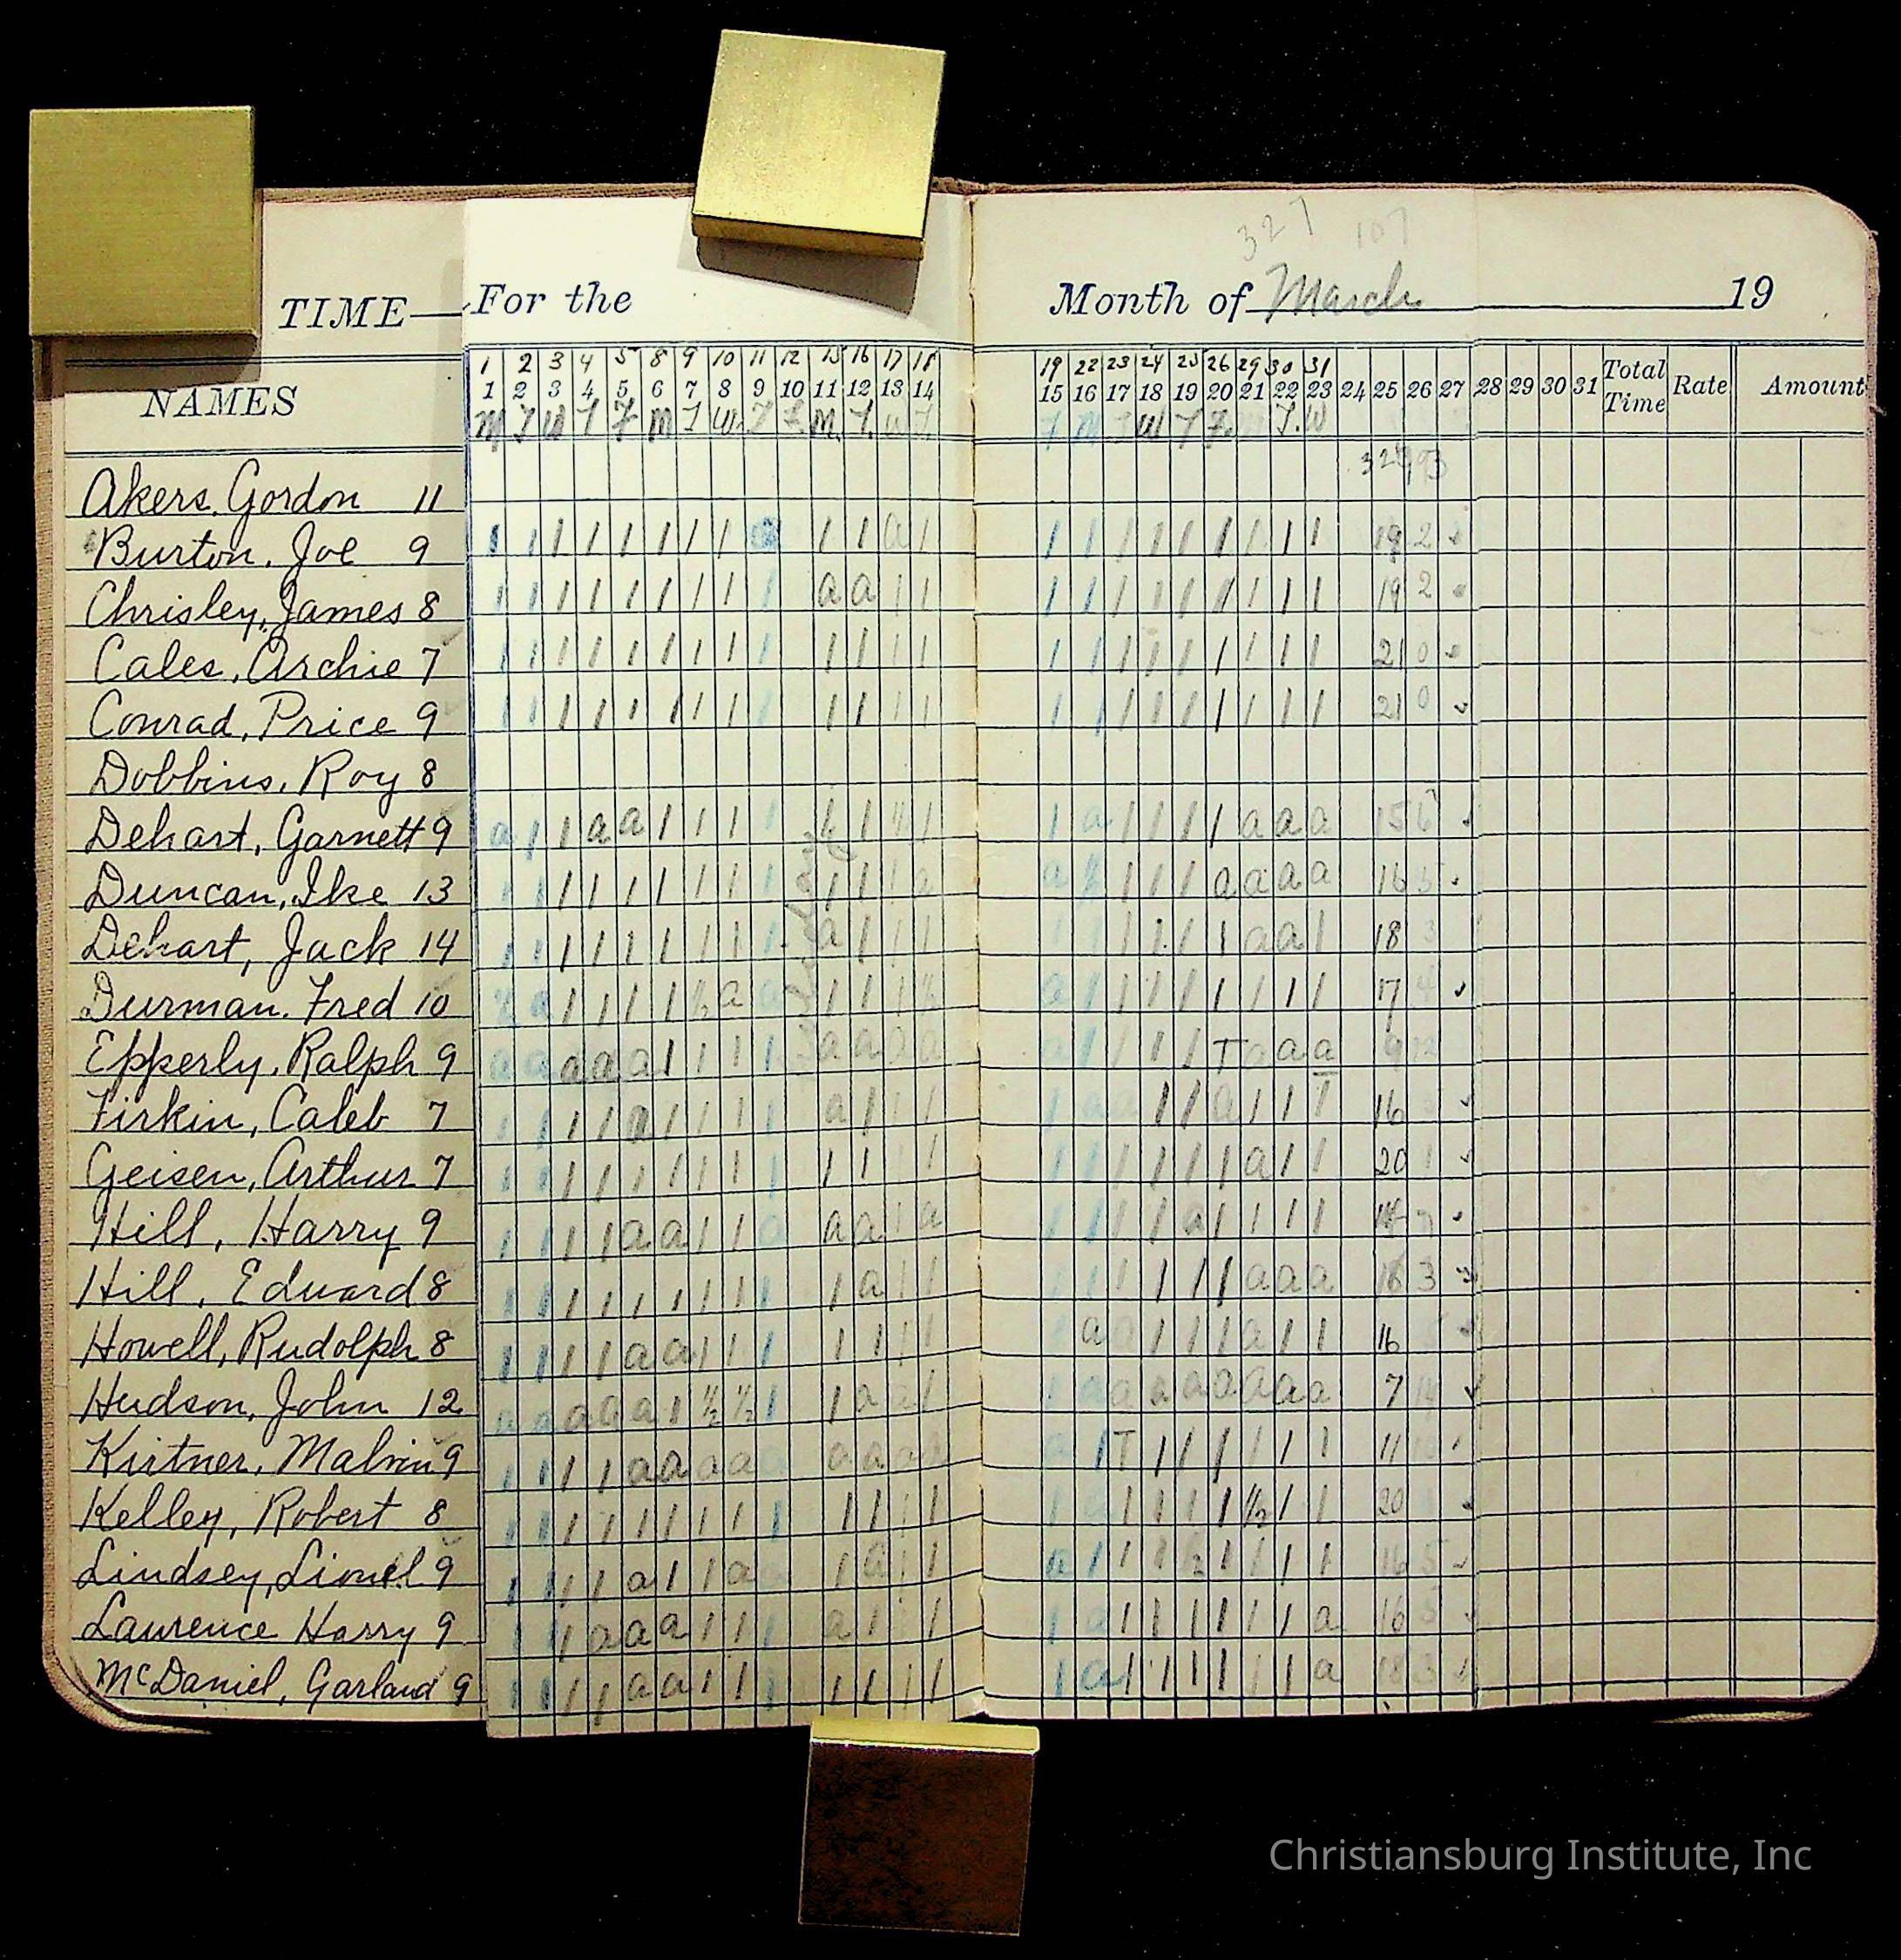 327 107
TIME— For the Month of March 19
1 2 3 4 5 8 9 10 11 12 15 16 17 18 19 22 23 24 25 26 29 30 31
NAMES 1 2 3 4 5 6 7 8 9 10 11 12 13 14 15 16 17 18 19 20 21 22 23 24 25 26 27 28 29 30 31 Total Time Rate Amount
M T W T F M T W T F M T W T F M T W T F T W
Akers, Gordon 11
Burton, Joe 9 1 1 1 1 1 1 1 1 a 1 1 a 1 1 1 1 1 1 1 1 1 1 19 2
Chrisley, James 8 1 1 1 1 1 1 1 1 1 a a 1 1 1 1 1 1 1 1 1 1 1 19 2
Cales, Archie 7 1 1 1 1 1 1 1 1 1 1 1 1 1 1 1 1 1 1 1 1 1 1 21 0
Conrad, Price 9 1 1 1 1 1 1 1 1 1 1 1 1 1 1 1 1 1 1 1 1 1 1 21 0
Dobbins, Roy 8
Dehart, Garnett 9 a 1 1 a a 1 1 1 1 1 1 1 1 a 1 1 1 1 a a a 15 6
Duncan, Ike 13 1 1 1 1 1 1 1 1 1 1 1 1 a a 1 1 1 a a a a 16 5
Dehart, Jack 14 1 1 1 1 1 1 1 1 1 a 1 1 1 1 1 1 1 1 1 a a 1 18 3
Durman, Fred 10 ½ a 1 1 1 1 ½ a a 1 1 1 ½ a 1 1 1 1 1 1 1 1 17 4
Epperly, Ralph 9 a a a a a 1 1 1 1 a a a a a 1 1 1 1 T a a a 9 12
Firkin, Caleb 7 1 1 1 1 a 1 1 1 1 a 1 1 1 1 a a 1 1 a 1 1 1 16
Geisen, Arthur 7 1 1 1 1 1 1 1 1 1 1 1 1 1 1 1 1 1 1 a 1 1 20 1
Hill, Harry 9 1 1 1 1 a a 1 1 a a a 1 a 1 1 1 1 a 1 1 1 1
Hill, Edward 8 1 1 1 1 1 1 1 1 1 1 a 1 1 1 1 1 1 1 1 a a a 3
Howell, Rudolph 8 1 1 1 1 a a 1 1 1 1 1 1 1 a a 1 1 1 a 1 1 16
Hudson, John 12 a a a a a 1 ½ ½ 1 1 a a 1 1 a a a a a a a a 7 14
Kirtner, Malvin 9 1 1 1 1 a a a a a a a a a a 1 T 1 1 1 1 1 1 11
Kelley, Robert 8 1 1 1 1 1 1 1 1 1 1 1 1 1 1 a 1 1 1 1 ½ 1 1 20
Lindsey, Lionel 9 1 1 1 1 a 1 1 a a 1 a 1 1 a 1 1 1 ½ 1 1 1 1 16 5
Laurence Harry 9 1 1 1 a a a 1 1 1 a 1 1 1 1 a 1 1 1 1 1 1 a 16 5
McDaniel, Garland 9 1 1 1 1 a a 1 1 1 1 1 1 1 1 a 1 1 1 1 1 1 a 18 3
Christiansburg Institute, Inc